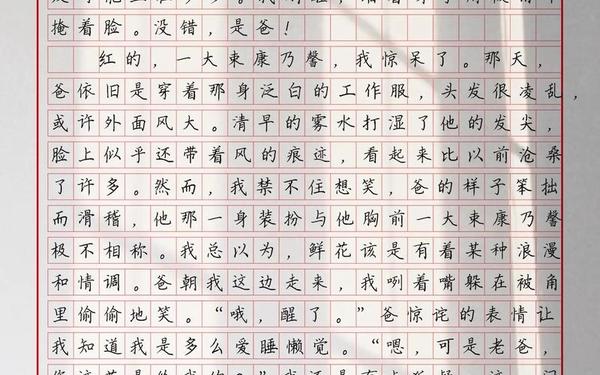 掩着脸。没错，是爸！
红的，一大束康乃馨，我惊呆了。那天，
爸依旧是穿着那身泛白的工作服，头发很凌乱，
或许外面风大。清早的雾水打湿了他的发尖，
脸上似乎还带着风的痕迹，看起来比以前沧桑
了许多。然而，我禁不住想笑，爸的样子笨拙
而滑稽，他那一身装扮与他胸前一大束康乃馨
极不相称。我总以为，鲜花该是有着某种浪漫
和情调。爸朝我这边走来，我咧着嘴躲在被角
里偷偷地笑。“哦，醒了。”爸惊诧的表情让
我知道我是多么爱睡懒觉。“嗯，可是老爸，